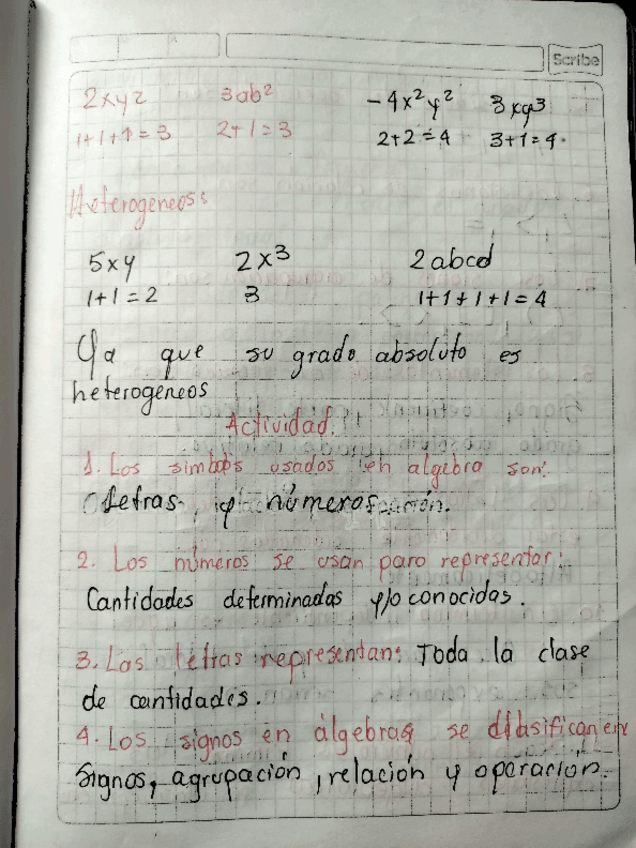 Scribe
2xyz 3ab² -4x²y² 3xy³
1+1+1=3 2+1=3 2+2=4 3+1=4.
Heterogeneos:
5xy 2x³ 2abcd
1+1=2 3 1+1+1+1=4
Ya que su grado absoluto es
heterogéneos
Actividad.
1. Los simbols usados en algebra son:
Letras y números
2. Los números se usan para representar:
Cantidades determinadas y/o conocidas.
3. Las letras representan: Toda la clase
de cantidades.
4. Los signos en álgebras se clasifican en
Signos, agrupación, relación y operación.